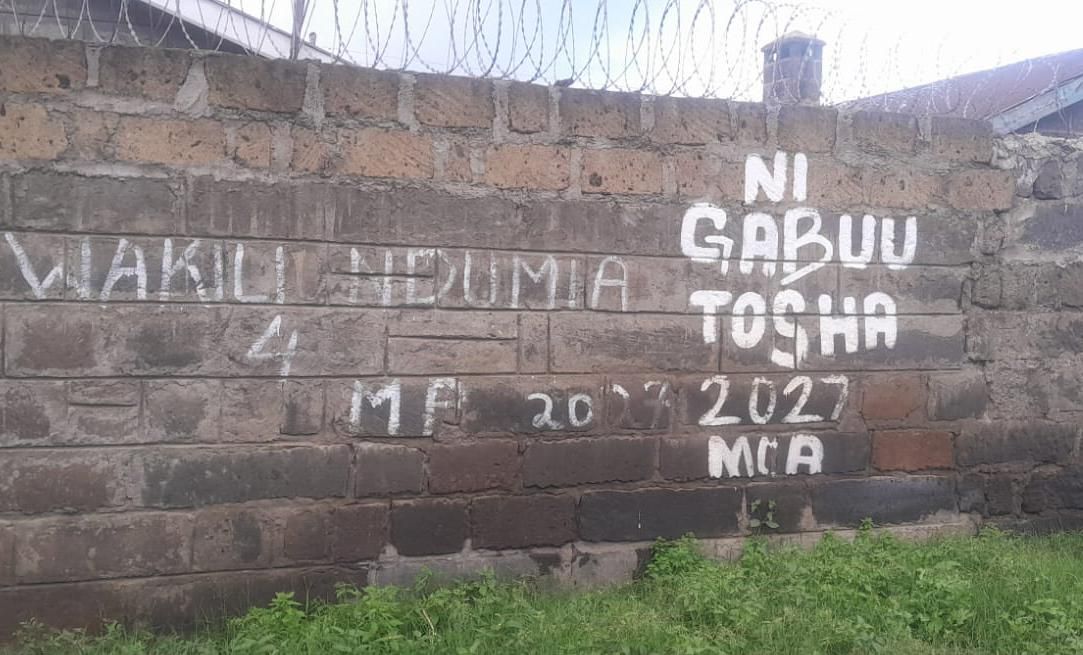 WAKILI NDUMIA
4
MP 2027
NI
GABUU
TOSHA
2027
MCA